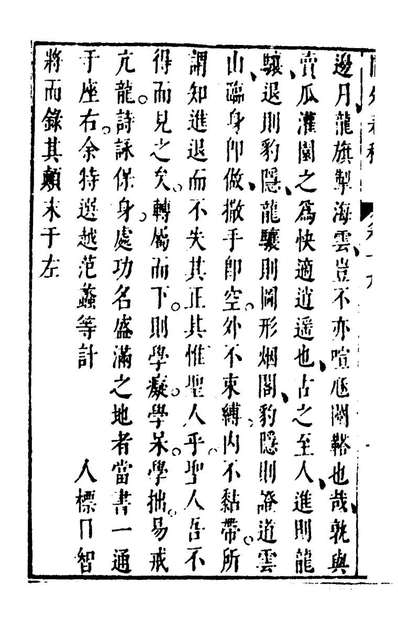 邊月龍旗掣海雲豈不亦喧㢠闊輅也哉孰與
賣瓜灌園之為快適逍遥也古之至人進則龍
驤退則豹隱龍驤則圖形烟閣豹隱則證道雲
山臨身卽做撒手卽空外不束縛内不黏帶所
謂知進退而不失其正其惟聖人乎聖人吾不
得而見之矣轉屬而下則學癡學呆學拙易戒
亢龍詩詠保身處功名盛滿之地者當書一通
于座右余特選越范蠡等計 人標曰智
將而錄其顛末于左